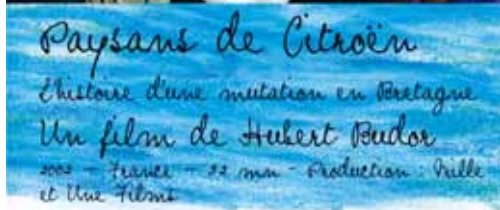 Paysans de Citroën
L'histoire d'une mutation en Bretagne
Un film de Hubert Budor
2002 - France - 52 mn - Production : Mille
et Une Films